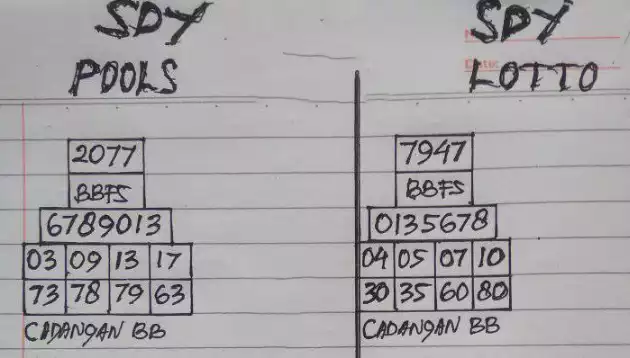 SDY
POOLS
2077
BBFS
6789013
03 09 13 17
73 78 79 63
CADANGAN BB
SDY
LOTTO
7947
BBFS
0135678
04 05 07 10
30 35 60 80
CADANGAN BB